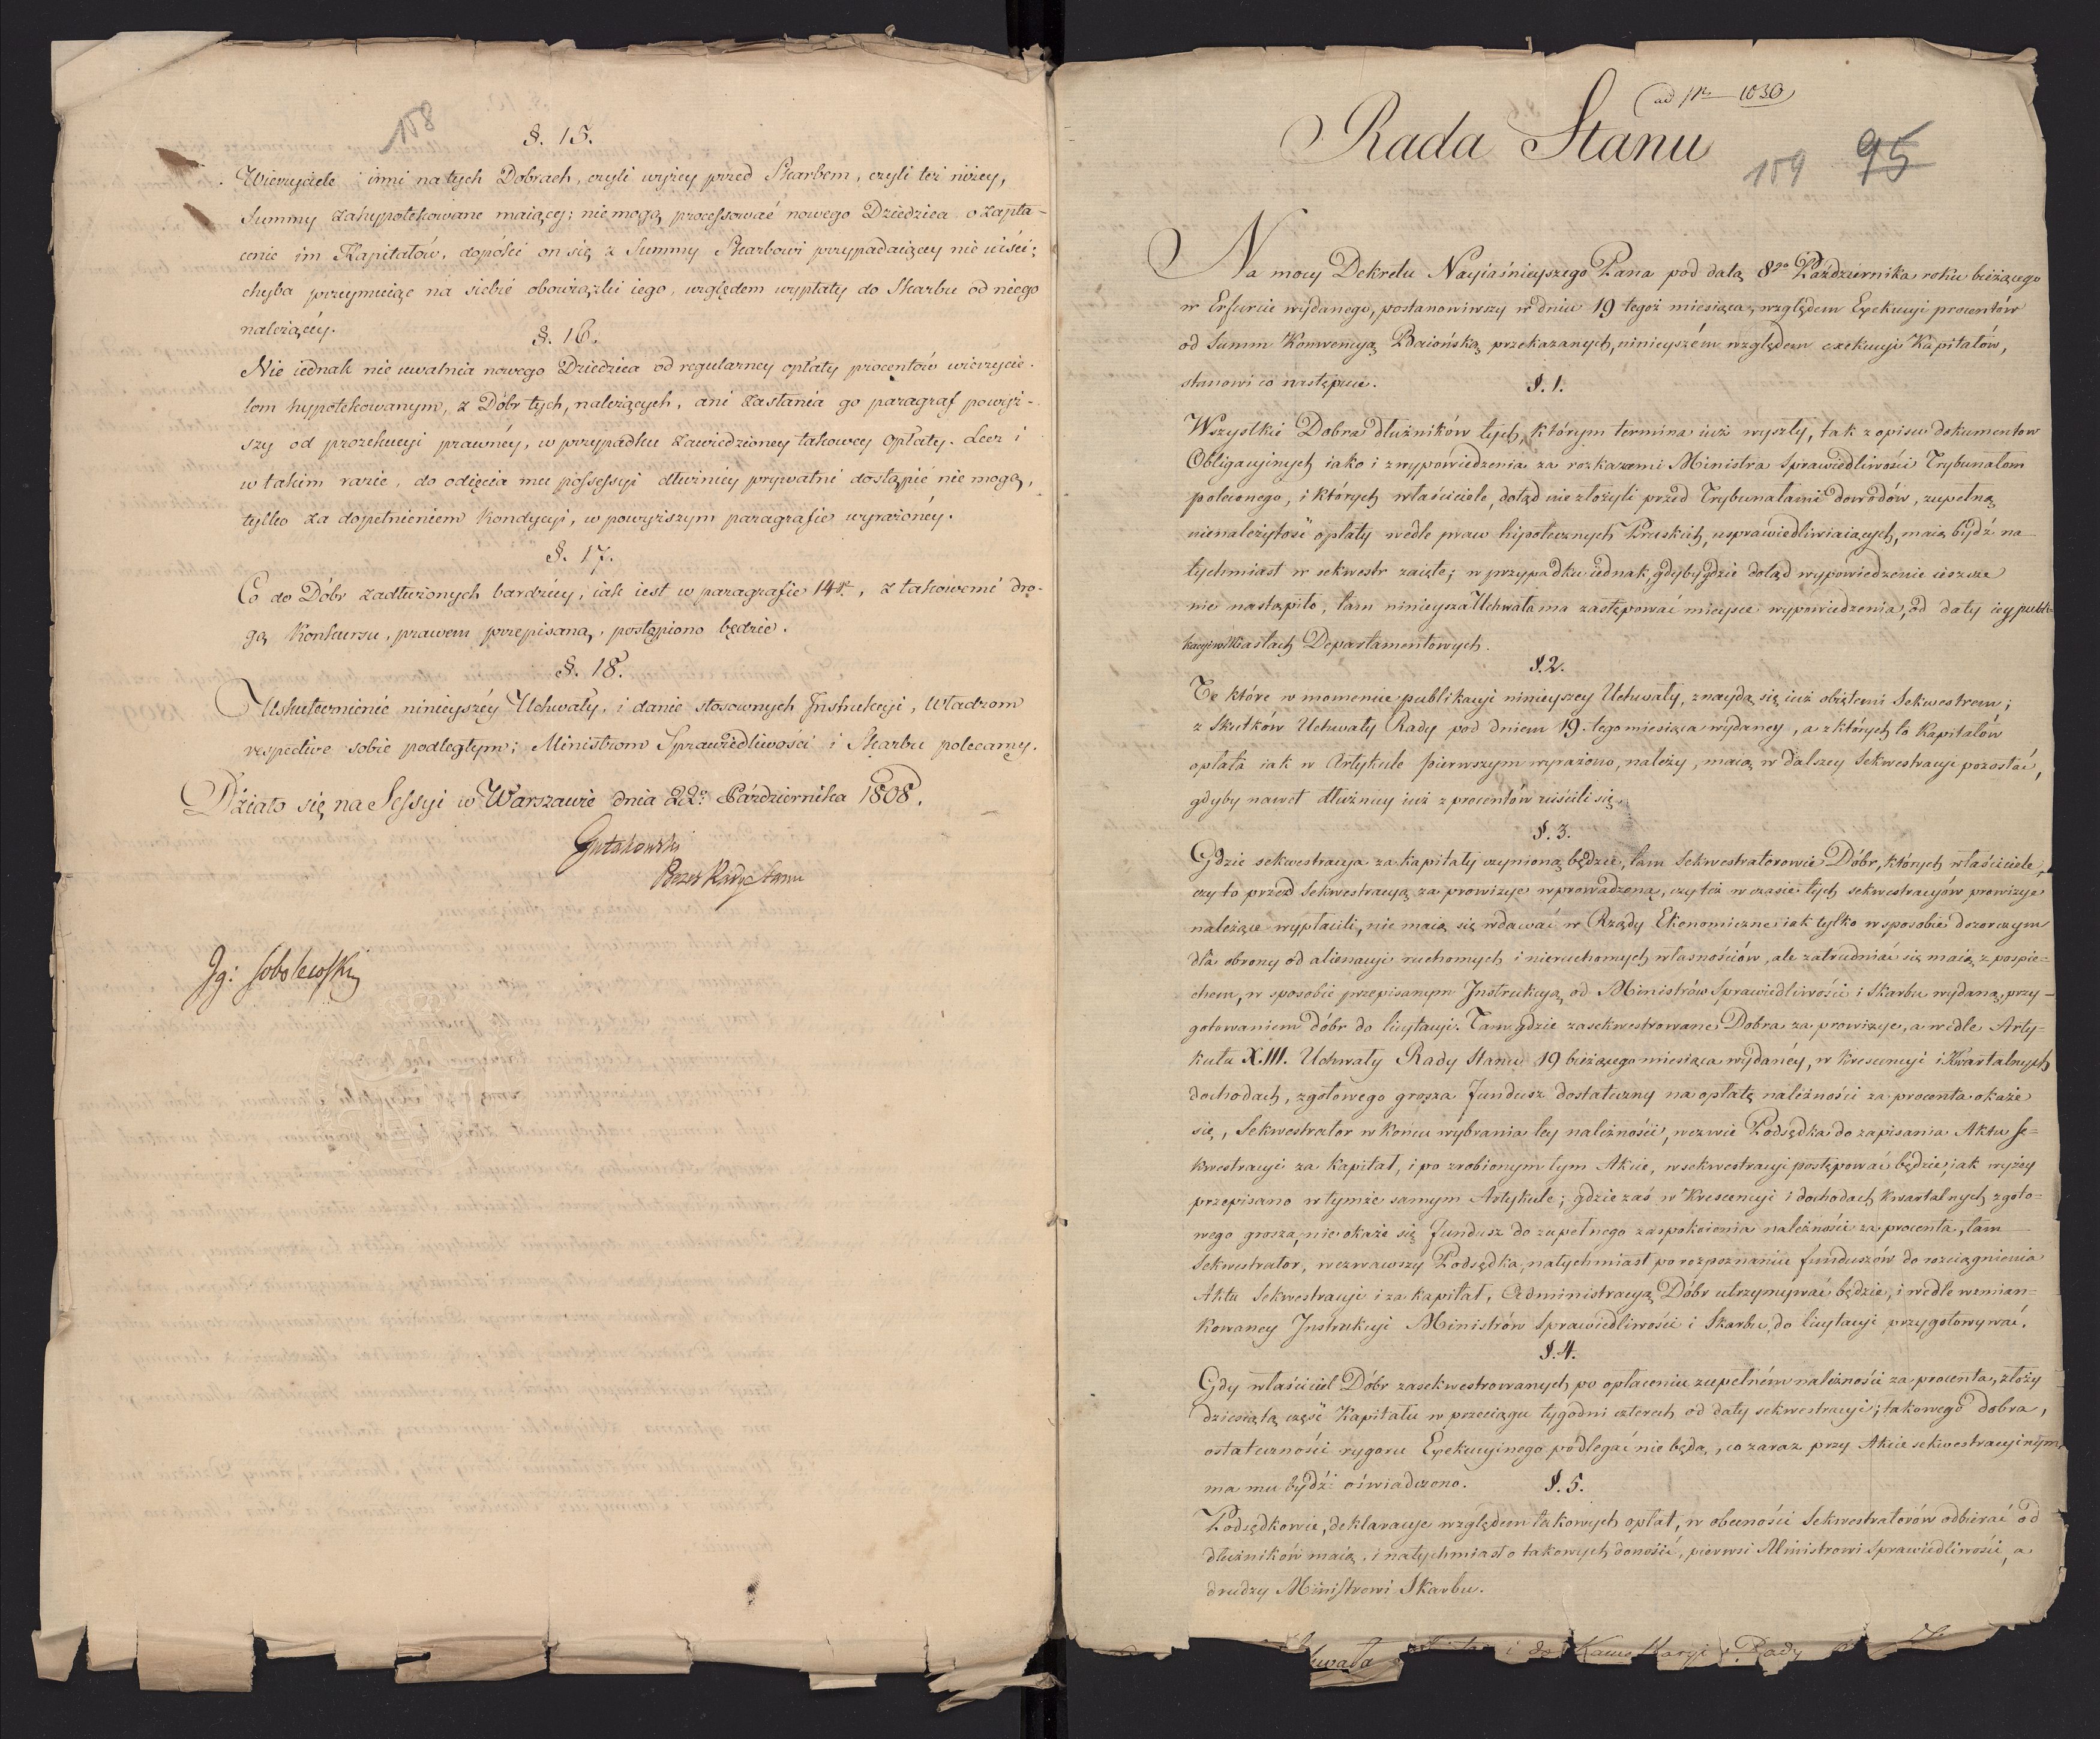 158
§. 15.
Wierzyciele inni na tych Dobrach, czyli wyżey przed Skarbem, czyli też niżey,
Summy zahypotekowane maiący; nie mogą processować nowego Dziedzica o zapła-
cenie im Kapitałów, dopóki on się z Summy Skarbowi przypadaiącey nie uiści;
chyba przeymuiąc na siebie obowiązki iego, względem wypłaty do Skarbu od niego
należącéy.
§. 16.
Nie iednak nie uwalnia nowego Dziedzica od regularney opłaty procentów wierzycie-
lom hypotekowanym, z Dóbr tych, należących, ani zasłania go paragraf powyż-
szy od prozekucyi prawnéy, w przypadku zawiedzioney takowey opłaty. Lecz i
w takim razie, do odięcia mu possessyi dłużnicy prywatni dostąpić nie mogą,
tylko za dopełnieniem kondycyi, w powyższym paragrafie wyrażonéy.
§. 17.
Co do Dóbr zadłużonych bardziéy, iak iest w paragrafie 14ym, z takowemi dro-
gą Konkursu, prawem przepisaną, postąpiono będzie.
§. 18.
Uskutecznienie ninieyszéy Uchwały, i danie stosownych Instrukcyi, Władzom
respective sobie podległym; Ministrom Sprawiedliwości i Skarbu polecamy.
Działo się na Sessyi w Warszawie dnia 22go Października 1808.
Gutakowski
Prezes Rady Stanu
Ig: Sobolewski
ad Nr 1030
Rada Stanu
159 95
Na mocy Dekretu Nayiaśnieyszego Pana pod datą 8go Października roku bieżącego
w Erfurcie wydanego, postanowiwszy w dniu 19 tegoż miesiąca, względem Exekucyi procentów
od Summ Konwencyą Baiońską przekazanych, ninieyszém względem exekucyi Kapitałów,
stanowi co następuie.
§. 1.
Wszystkie Dobra dłużników tych, którym termina iuż wyszły, tak z opisu dokumentow
Obligacyinych iako i z wypowiedzenia za rozkazami Ministra Sprawiedliwości Trybunałom
poleconego, i których właściciele, dotąd nie złożyli przed Trybunałami dowodów, zupełną
nienależytość opłaty wedle praw hipotecznych Pruskich, usprawiedliwiaiących, maią bydź na
tychmiast w sekwestr zaięte; w przypadku iednak, gdyby gdzie dotąd wypowiedzenie ieszcze
nie nastąpiło, tam ninieysza Uchwała ma zastępować mieysce wypowiedzenia, od daty iey publi-
kacyi w Miastach Departamentowych.
§. 2.
Te które w momencie publikacyi ninieyszey Uchwały, znaydą się iuż obiętemi Sekwestrem;
z skutków Uchwały Rady pod dniem 19. tego miesiąca wydaney, a z których to Kapitałów
opłata iak w Artykule pierwszym wyrażono, należy, maią w dalszey Sekwestracyi pozostać,
gdyby nawet dłużnicy iuż z procentów uiścili się.
§. 3.
Gdzie sekwestracya za kapitały czynioną będzie, tam Sekwestratorowie Dóbr, których właściciele,
czy to przed Sekwestracyą za prowizye wprowadzoną, czy też w czasie tych sekwestracyów prowizye
należące wypłacili, nie maią się wdawać w Rządy Ekonomiczne iak tylko w sposobie dozorczym
dla obrony od alienacyi ruchomych i nieruchomych własnościów, ale zatrudniać się maią z pospie-
chem, w sposobie przepisanym Instrukcyą od Ministrów Sprawiedliwości i Skarbu wydaną, przy-
gotowaniem dóbr do licytacyi. Tam gdzie zasekwestrowane Dobra za prowizye, a wedle Arty-
kułu XIII. Uchwały Rady Stanu 19 bieżącego miesiąca wydanéy, w krescencyi i Kwartalnych
dochodach, zgotowego grosza fundusz dostateczny na opłatę należności za procenta okaże
się, Sekwestrator w końcu wybrania tey należności, wezwie Podsędka do zapisania Aktu Se-
kwestracyi za kapitał, i po zrobionym tym Akcie, w sekwestracyi postępować będzie, iak wyżey
przepisano w tymże samym Artykule; gdzie zaś w Krescencyi i dochodach kwartalnych zgoto-
wego grosza, nie okaże się fundusz do zupełnego zaspokoienia należności za procenta, tam
Sekwestrator, wezwawszy Podsędka, natychmiast po rozpoznaniu funduszów do rozciągnienia
Aktu Sekwestracyi i za kapitał, Administracyą Dóbr utrzymywać będzie, i wedle wzmian-
kowaney Instrukcyi Ministrów Sprawiedliwości i Skarbu, do licytacyi przygotowywać.
§. 4.
Gdy właściciel Dóbr zasekwestrowanych po opłaceniu zupełném należności za procenta, złoży
dziesiątą część Kapitału w przeciągu tygodni czterech od daty sekwestracyi; takowego dobra,
ostateczności rygoru Exekucyinego podlegać nie będą, co zaraz przy Akcie sekwestracyinym
ma mu bydź oświadczono.
§. 5.
Podsędkowie, deklaracye względem takowych opłat, w obecności Sekwestratorów odbierać od
dłużników maią, i natychmiast o takowych donosić, pierwsi Ministrowi Sprawiedliwości, a
drudzy Ministrowi Skarbu.
i do Kancellaryi Rady